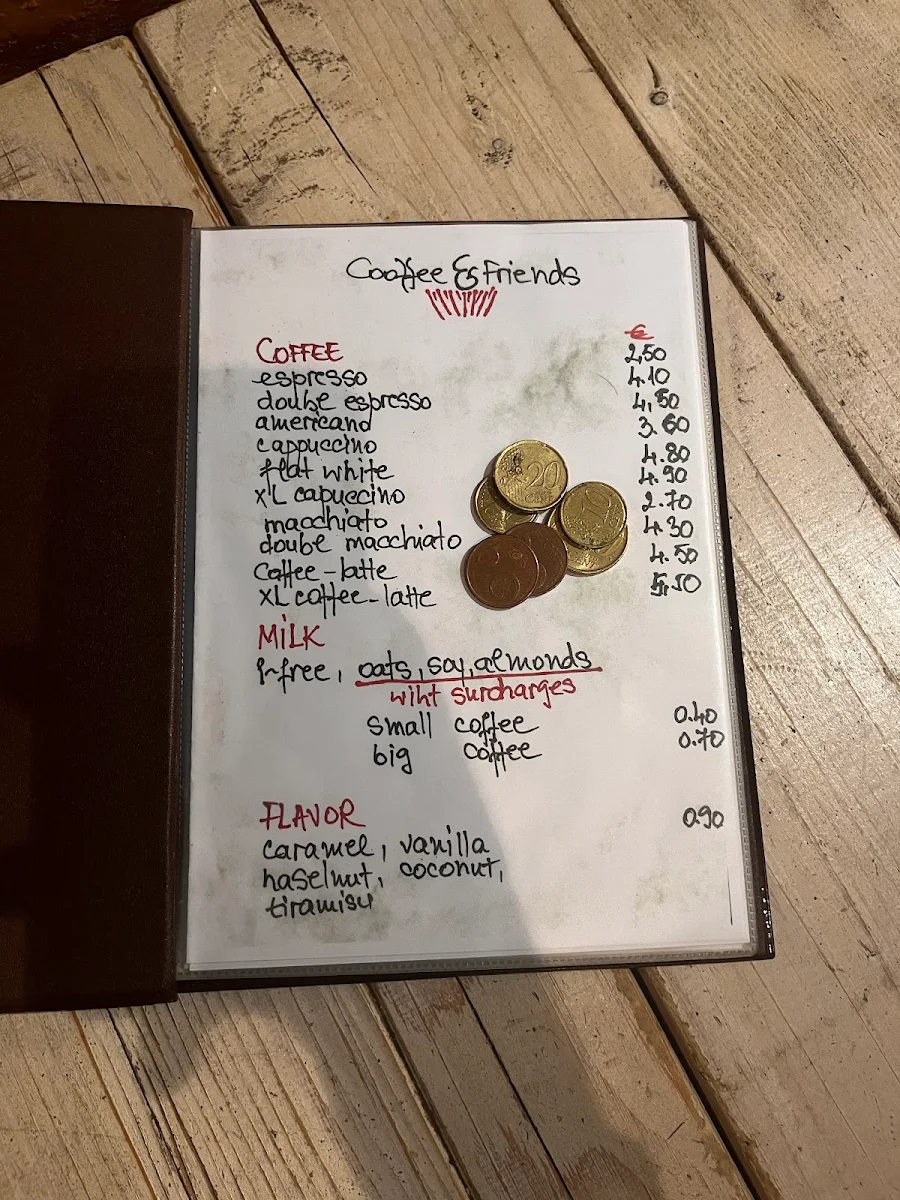 Cooffee & Friends
€
COFFEE
espresso 2,50
doube espresso 4.10
americano 4,50
cappuccino 3.60
flat white 4.80
xL capuccino 4.90
macchiato 2.70
doube macchiato 4.30
coffee-latte 4.50
XL coffee-latte 5,50
MiLK
l-free, oats, soy, almonds
wiht surcharges
small coffee 0.40
big coffee 0.70
FLAVOR 0.90
caramel, vanilla
haselnut, coconut,
tiramisu
20
CENT
10